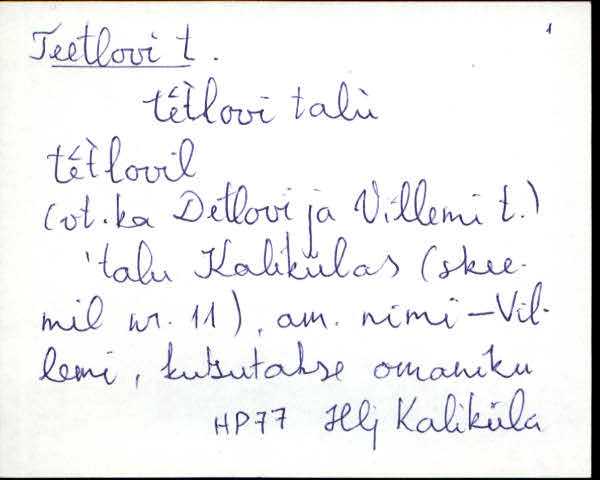 1
Teetlovi t.
tēt̀lovi talù
tēt̀lovil
(vt. ka Detlovi ja Villemi t.)
'talu Kaliküla​s (skee-
mil nr. 11), am. nimi – Vil-
lemi, kutsutakse omaniku
HP77 Hlj Kaliküla